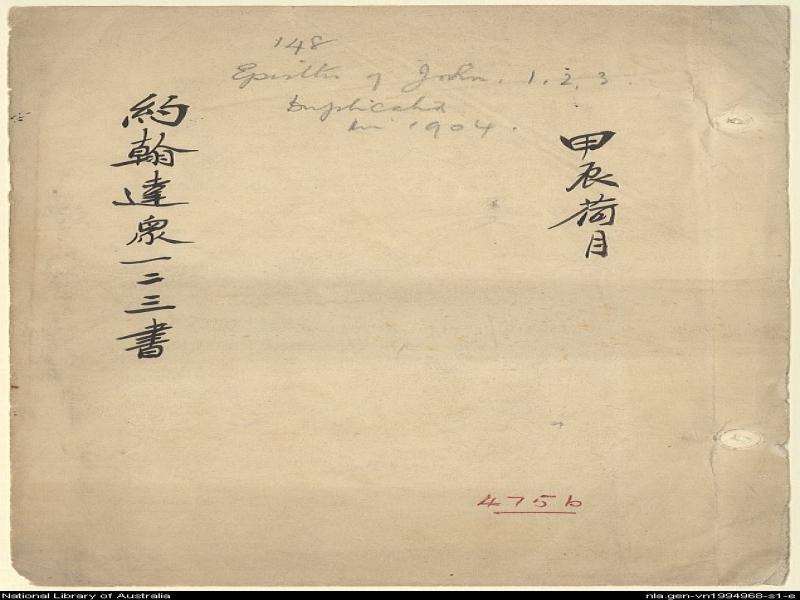 148
Epistles of John. 1, 2, 3.
Duplicated
in 1904.
甲辰荷月
約翰達衆一二三書
4756
National Library of Australia
nla.gen-vn1994968-s1-e